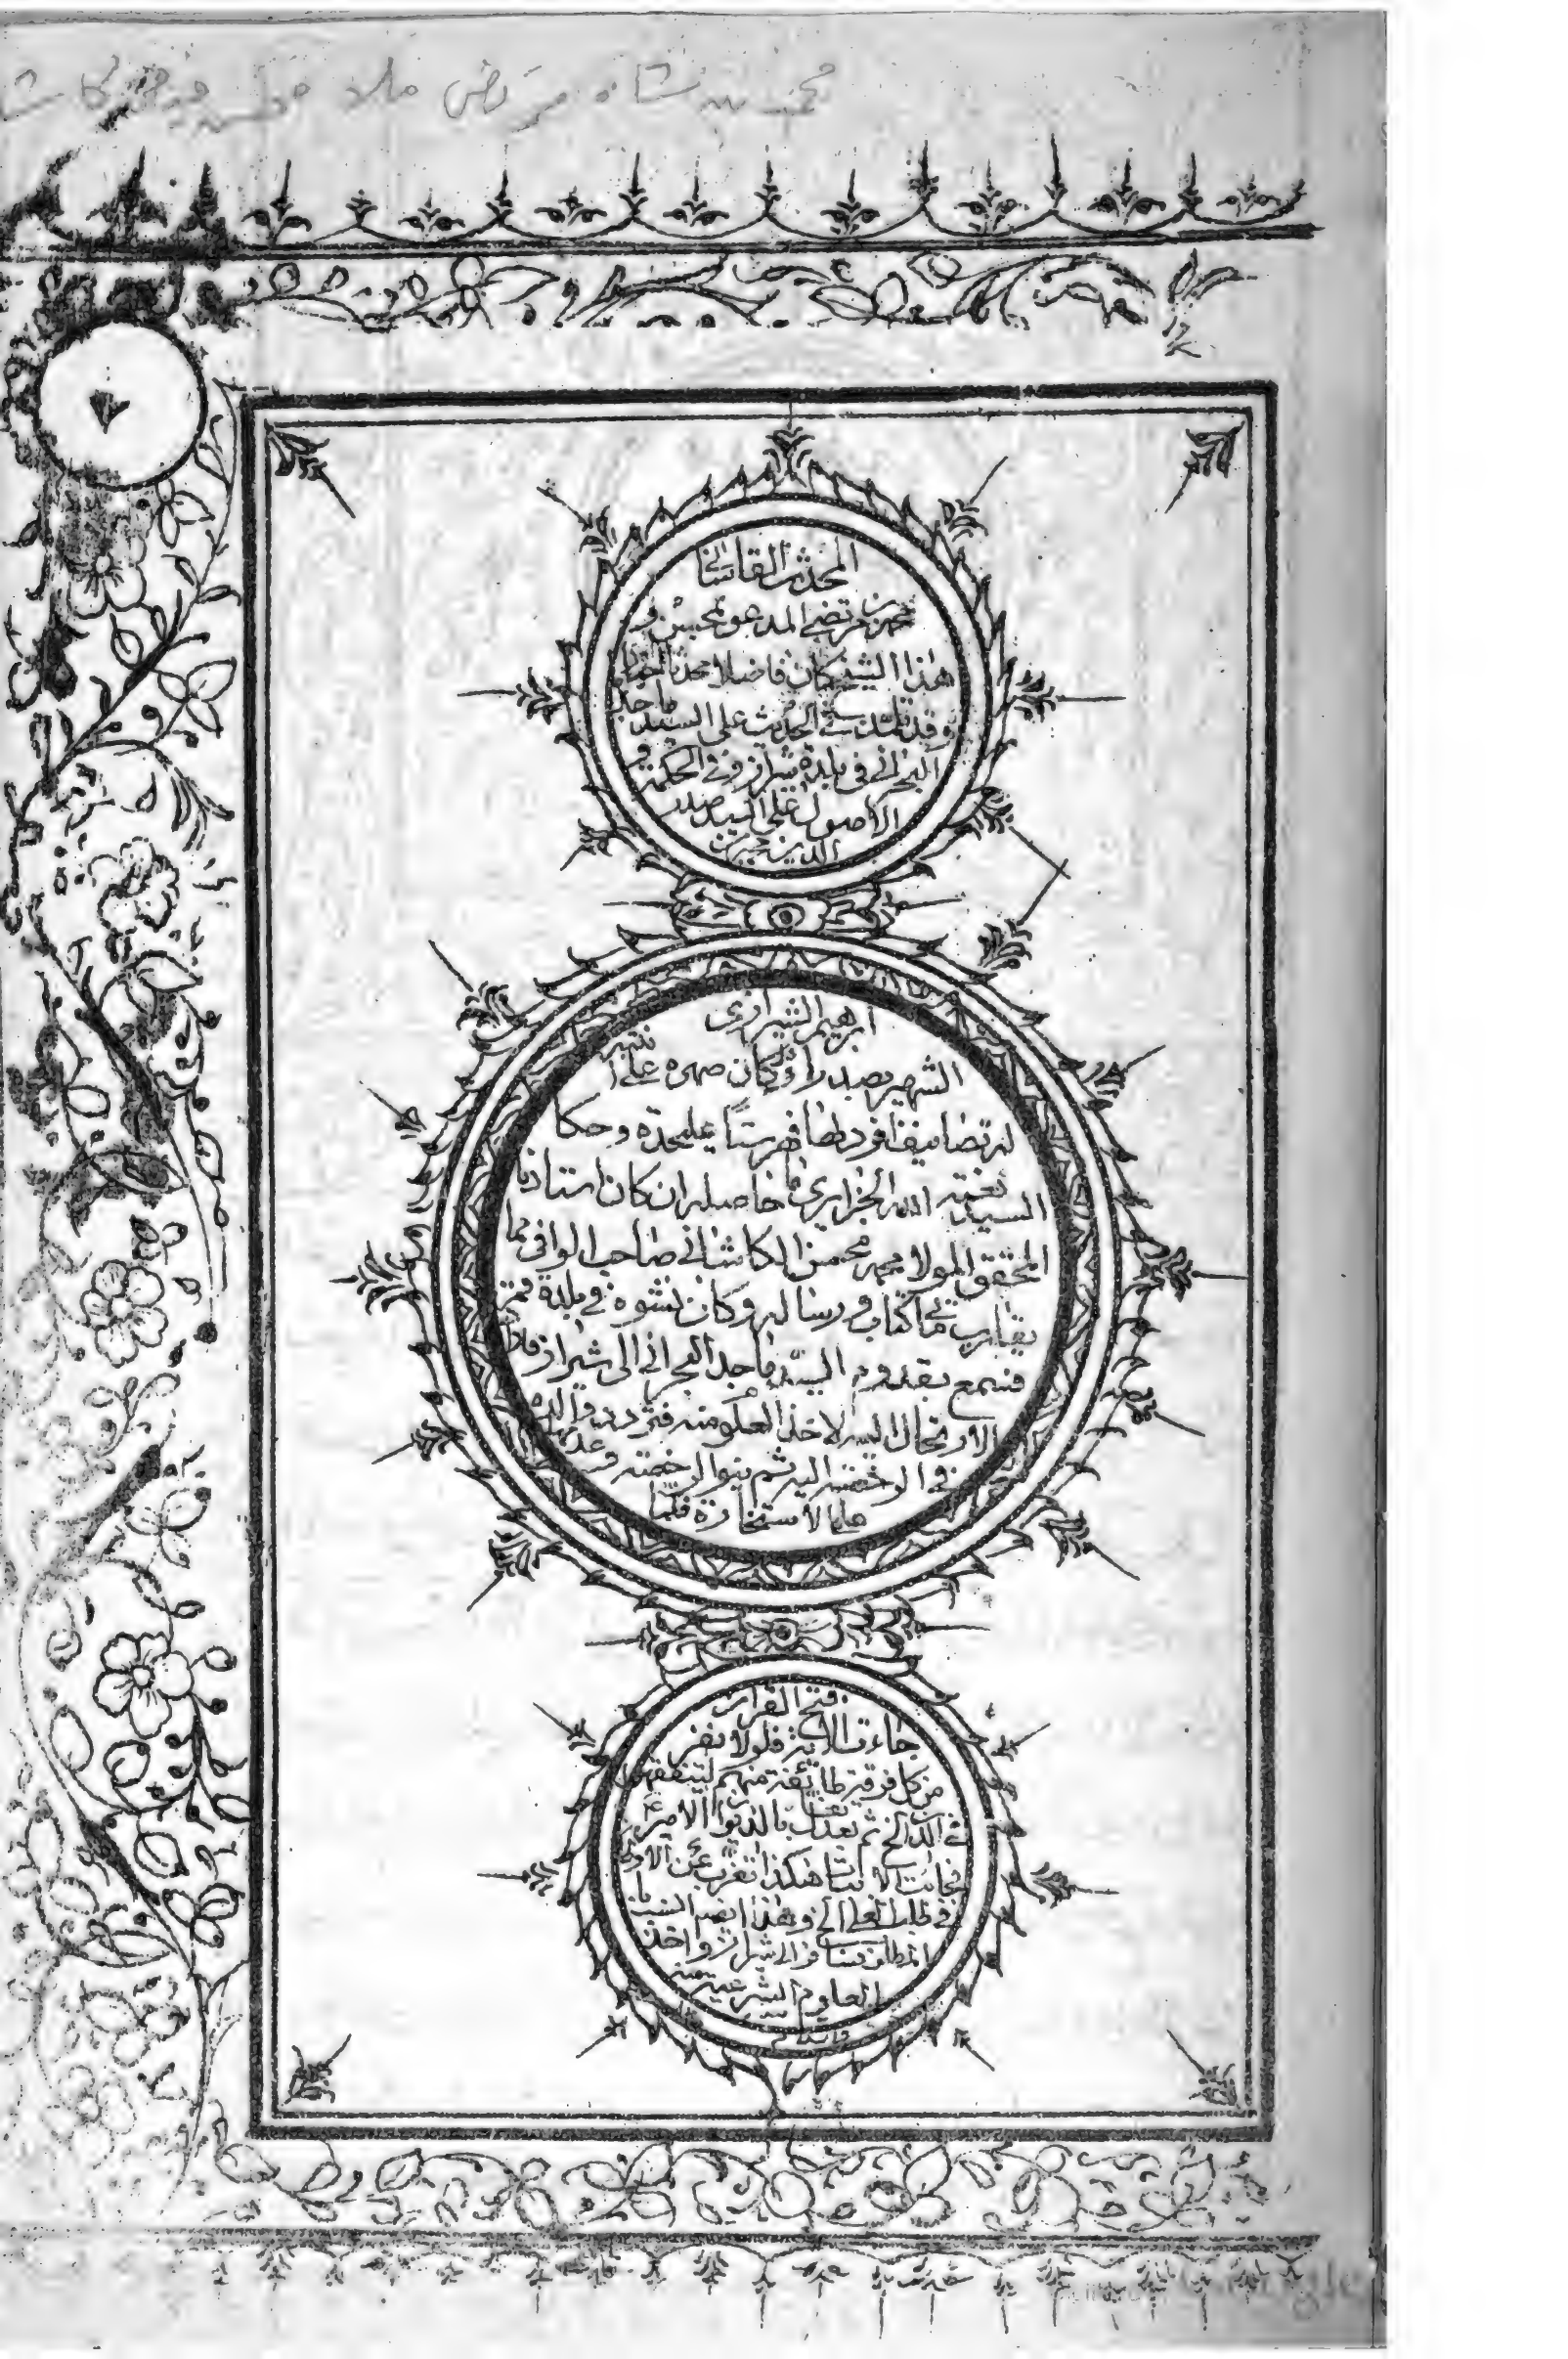 محمد بن شاه مرتضى ملا
١٢
المحدث القاساني
محمد بن مرتضى المدعو بمحسن و
هذا الشيخ كان فاضلا محدثا
وقد تلمذ في الحديث على السيد ماجد
البحراني في بلدة شيراز وفي الحكمة و
الاصول على السيد صدر
الدين محمد بن
ابرهيم الشيرازي
الشهير بصدرا وكان صهره على ابنته
له تصانيف افرد لها فهرستا عليحدة وحكا
السيد نعمة الله الجزايري ما حاصله ان كان استاذنا
المحقق المولا محمد محسن الكاشاني صاحب الوافي مما
يقارب مأتي كتاب ورسالة وكان نشوه في بلدة قم
فسمع بقدوم السيد ماجد البحراني الى شيراز فاراد
الارتحال اليه لاخذ العلوم منه فتردد والده
في الرخصة اليه ثم بنوا الرخصة وعدمها
على الاستخارة فلما
فتح القرآن
جاءت الآية فلولا نفر
من كل فرقة طائفة منهم ليتفقهوا
في الدين الخ ثم بعد تفأل بالديوان الامير ع
فجائت الابيات هكذا تغرب عن الاوطان
في طلب العلى الخ وهذا ايضا انسب با
لمطلوب فسافر الى شيراز واخذ
العلوم الشرعية منه